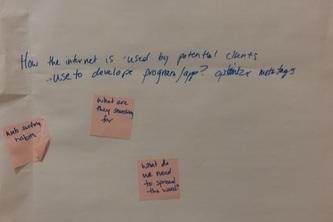 How the internet is used by potential clients
- use to develope program/app? optimize metatags
What are
they searching
for
web surfing
habits
What do
we need
to spread
the word?